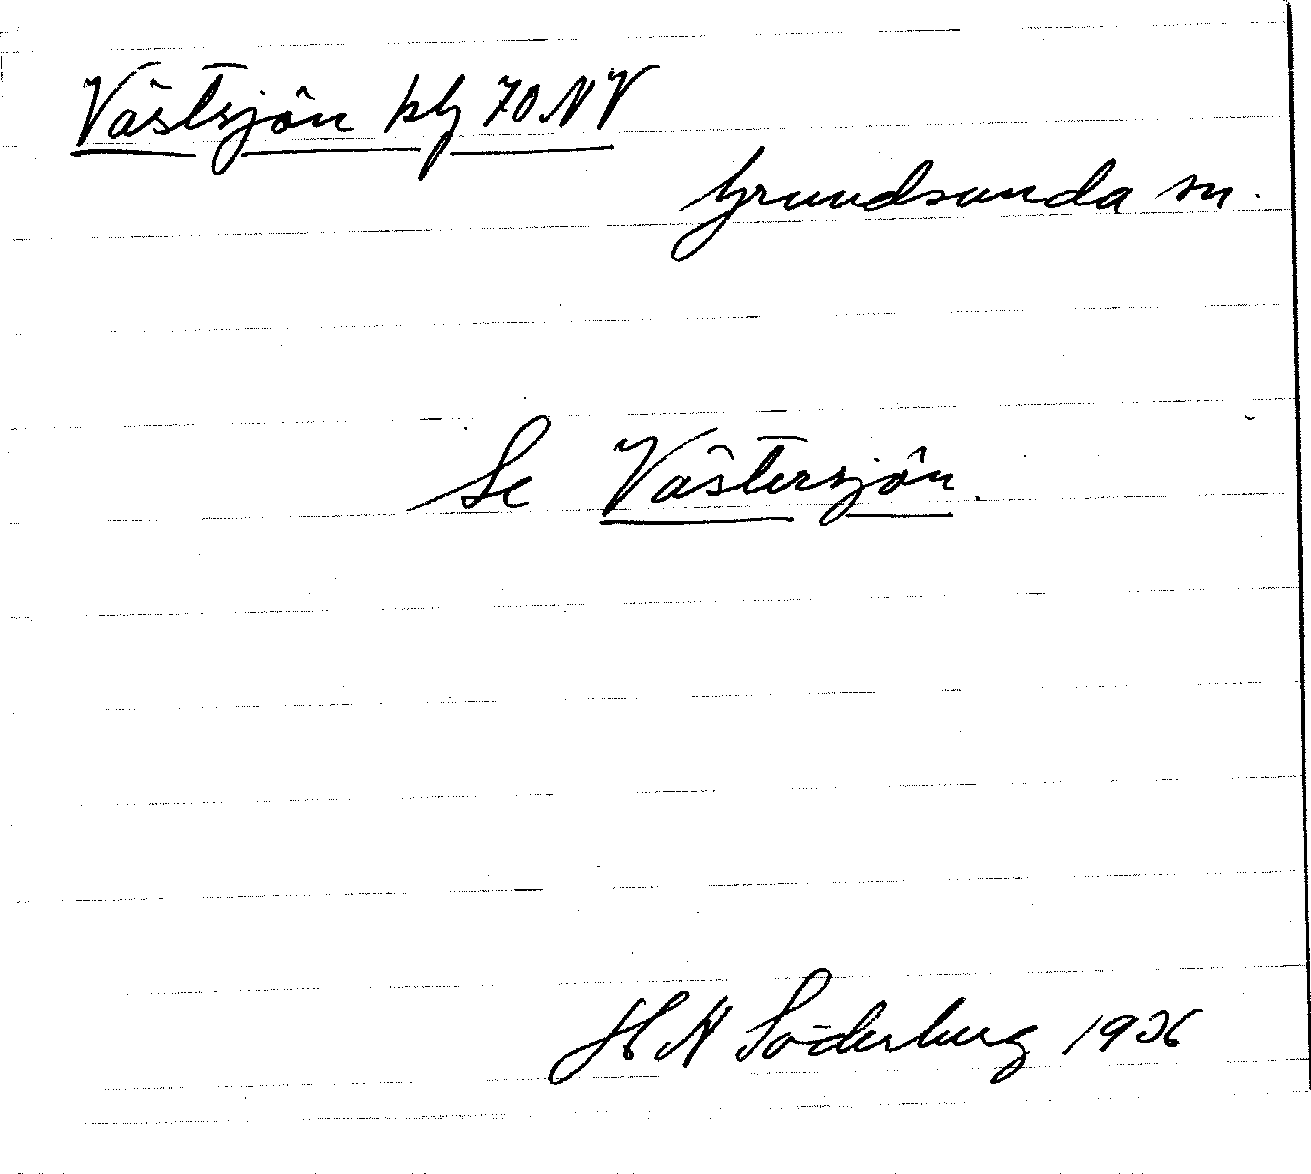 Västsjön kbg 70 NV
Grundsunda sn.
Se Västersjön.
H N Söderberg 1926